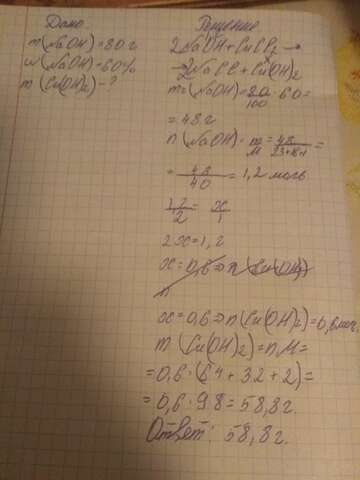 Дано
m(NaOH)=80 г
w(NaOH)=60%
m(Cu(OH)2)-?
Решение
2NaOH+CuCl2→
→2NaCl+Cu(OH)2
m(NaOH)=80/100·60=
=48г
n(NaOH)=m/M=48/23+16+1=
=48/40=1,2 моль
1,2/2=x/1
2x=1,2
x=0,6⇒n(Cu(OH)2)
n
x=0,6⇒n(Cu(OH)2)=0,6моль.
m(Cu(OH)2)=n·M=
=0,6·(64+32+2)=
=0,6·98=58,8г.
Ответ: 58,8г.